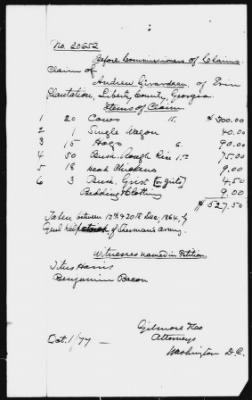 No. 20652
Before Commissioners of Claims
Claim of
Andrew Girardeau, of Erin
Plantation, Liberty County, Georgia
Items of Claim
1 20 Cows 15. $300.00
2 1 Single Wagon 40.00
3 15 Hogs 6 90.00
4 50 Bush. Rough Rice 1.50 75.00
5 18 Head Chickens 9.00
6 3 Bush. Grist 4.50
Bedding & Clothing 9.00
$527.50
Taken between 12th & 20th Dec, 1864, by
Genl of Sherman's Army.
Witnesses named in Petition
Titus Harris
Benjamin Bacon
Gilmore & Co
Attorneys
Oct. 1/77 — Washington D.C.